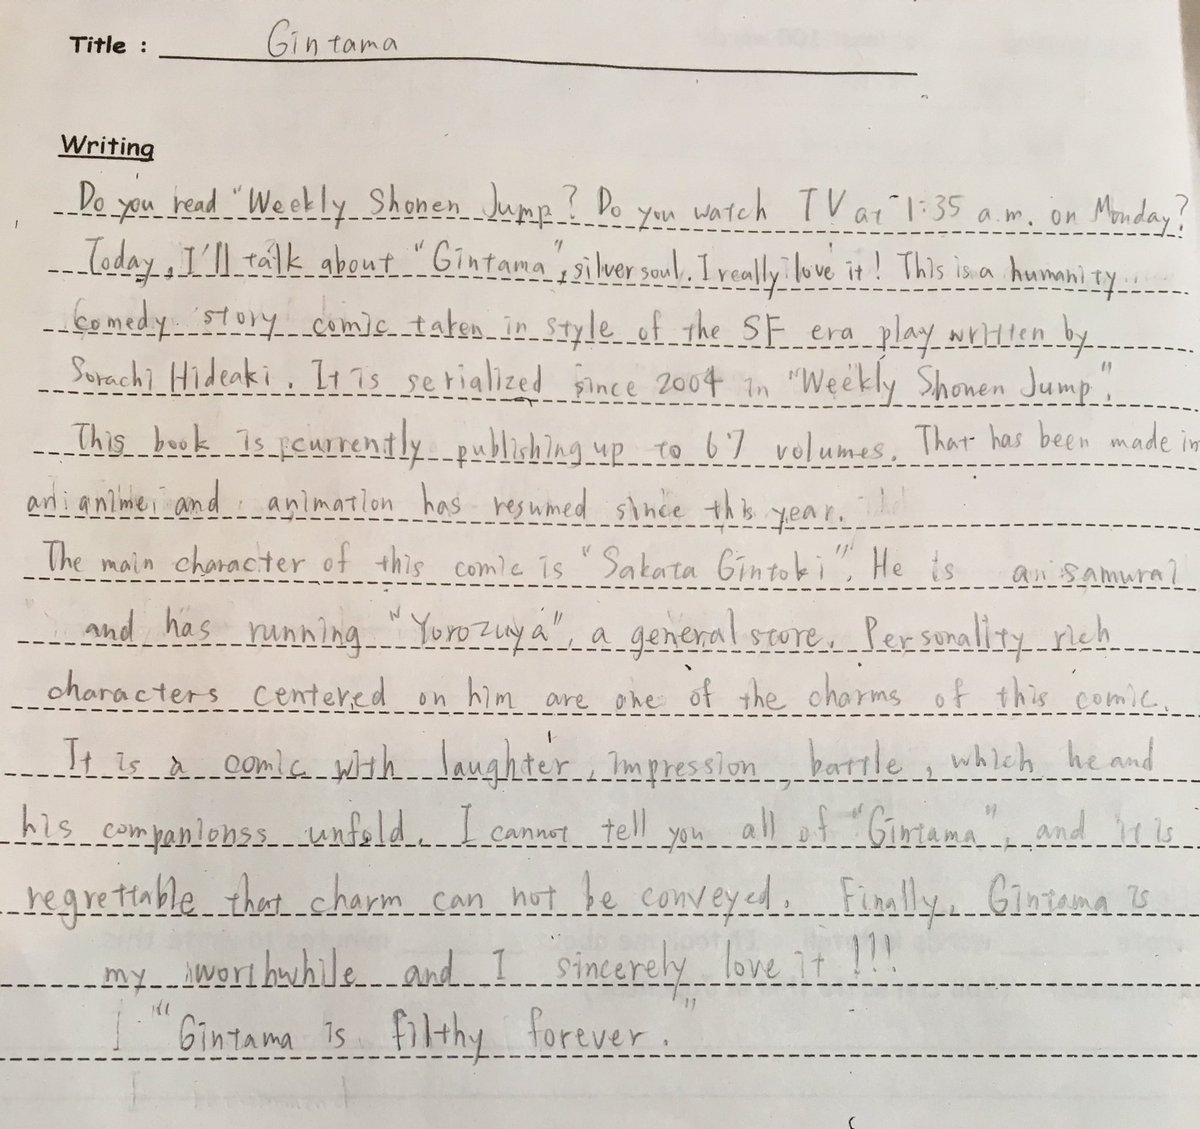 Title : Gintama
Writing
Do you read "Weekly Shonen Jump? Do you watch TV at 1:35 a.m. on Monday?
Today, I'll talk about "Gintama", silver soul. I really love it! This is a humanity
comedy story comic taken in style of the SF era play written by
Sorachi Hideaki. It is serialized since 2004 in "Weekly Shonen Jump".
This book is currently publishing up to 67 volumes. That has been made in
an anime and animation has resumed since this year.
The main character of this comic is "Sakata Gintoki". He is an samurai
and has running "Yorozuya", a general store. Personality rich
characters centered on him are one of the charms of this comic.
It is a comic with laughter, impression, battle, which he and
his companionss unfold. I cannot tell you all of "Gintama", and it is
regrettable that charm can not be conveyed. Finally, Gintama is
my worthwhile and I sincerely love it!!!
"Gintama is filthy forever."